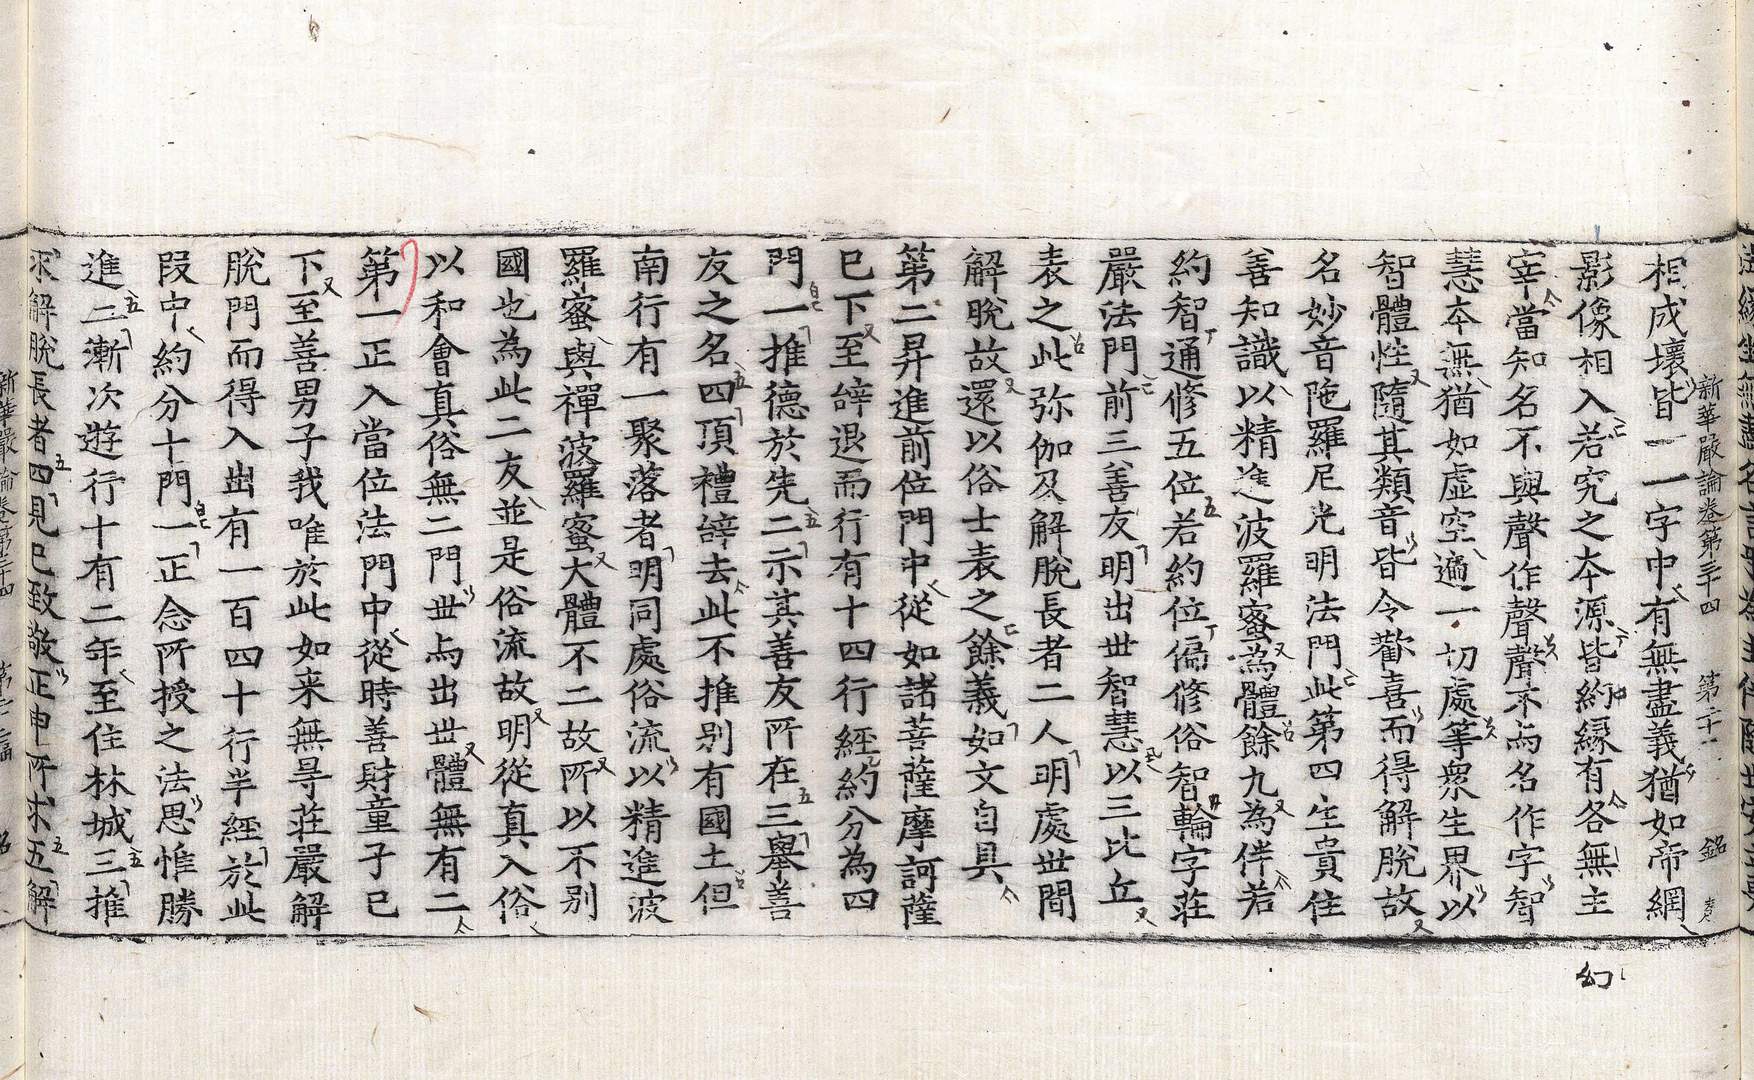 新華嚴論卷第三十四　第二十二　銘
相成壞皆一一字中有無盡義猶如帝網
影像相入若究之本源皆約緣有各無主
宰當知名不與聲作聲聲不与名作字智
慧本無猶如虛空遍一切處等衆生界以
智體性隨其類音皆令歡喜而得解脫故
名妙音陁羅尼光明法門此第四生貴住
善知識以精進波羅蜜為體餘九為伴若
約智通修五位若約位偏修俗智輪字莊
嚴法門前三善友明出世智慧以三比丘
表之此弥伽及解脫長者二人明處世間
解脫故還以俗士表之餘義如文自具
第二昇進前位門中從如諸菩薩摩訶薩
已下至辝退而行有十四行經約分為四
門一推德於先二示其善友所在三舉善
友之名四頂禮辝去此不推別有國土但
南行有一聚落者明同處俗流以精進波
羅蜜與禪波羅蜜大體不二故所以不別
國也為此二友並是俗流故明從真入俗
以和會真俗無二門世与出世體無有二
第一正入當位法門中從時善財童子已
下至善男子我唯於此如来無㝵莊嚴解
脫門而得入出有一百四十行半經於此
段中約分十門一正念所授之法思惟勝
進二漸次遊行十有二年至住林城三推
求解脫長者四見已致敬正申所求五解
幻